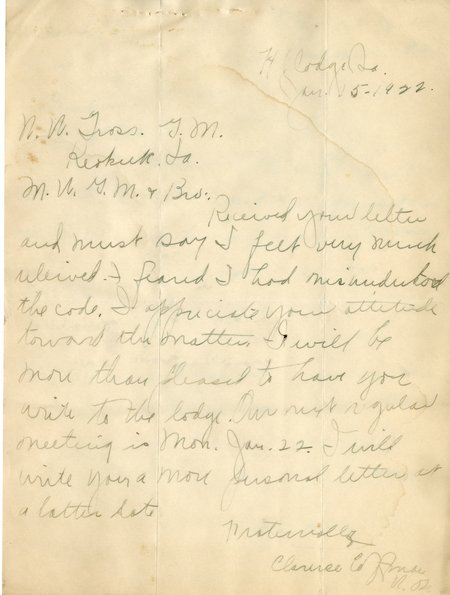 Jan. 15-1922.
W. B. Gross. G. M.
Keokuk. Ia.
M. W. G. M. & Bro:
Received your letter
and must say I felt very much
relieved. I feared I had misunderstood
the code. I appreciate your attitude
toward the matter. I will be
more than pleased to have you
write to the lodge. Our next regular
meeting is Mon. Jan. 22. I will
write you a more personal letter at
a latter date
Fraternally
Clarence E.